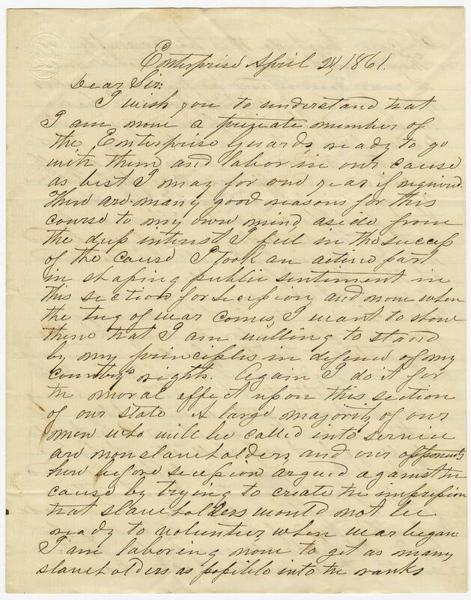 Enterprise April 24, 1861.
Dear Sir:
I wish you to understand that
I am now a private member of
the Enterprise Guards, ready to go
with them and labor in our cause
as best I may for one year if required
There are many good reasons for this
course to my own mind aside from
the deep interest I feel in the success
of the cause I took an active part
in shaping public sentiment in
this section for secession, and now when
the tug of war comes, I want to show
them that I am willing to stand
by my principles in defence of my
country's rights. Again I do it for
the moral effect upon this section
of our state A large majority of our
men who will be called into service
are nonslaveholders, and our opponents
here before secession argued against the
cause by trying to create the impression
that slaveholders would not be
ready to volunteer when war began
I am laboring now to get as many
slaveholders as possible into the ranks